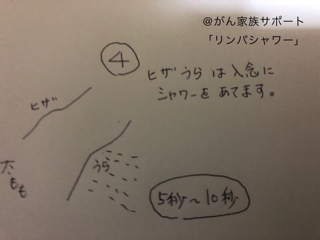 @がん家族サポート
「リンパシャワー」
④
ヒザうらは入念に
シャワーをあてます。
ヒザ
うら
太もも
5秒〜10秒